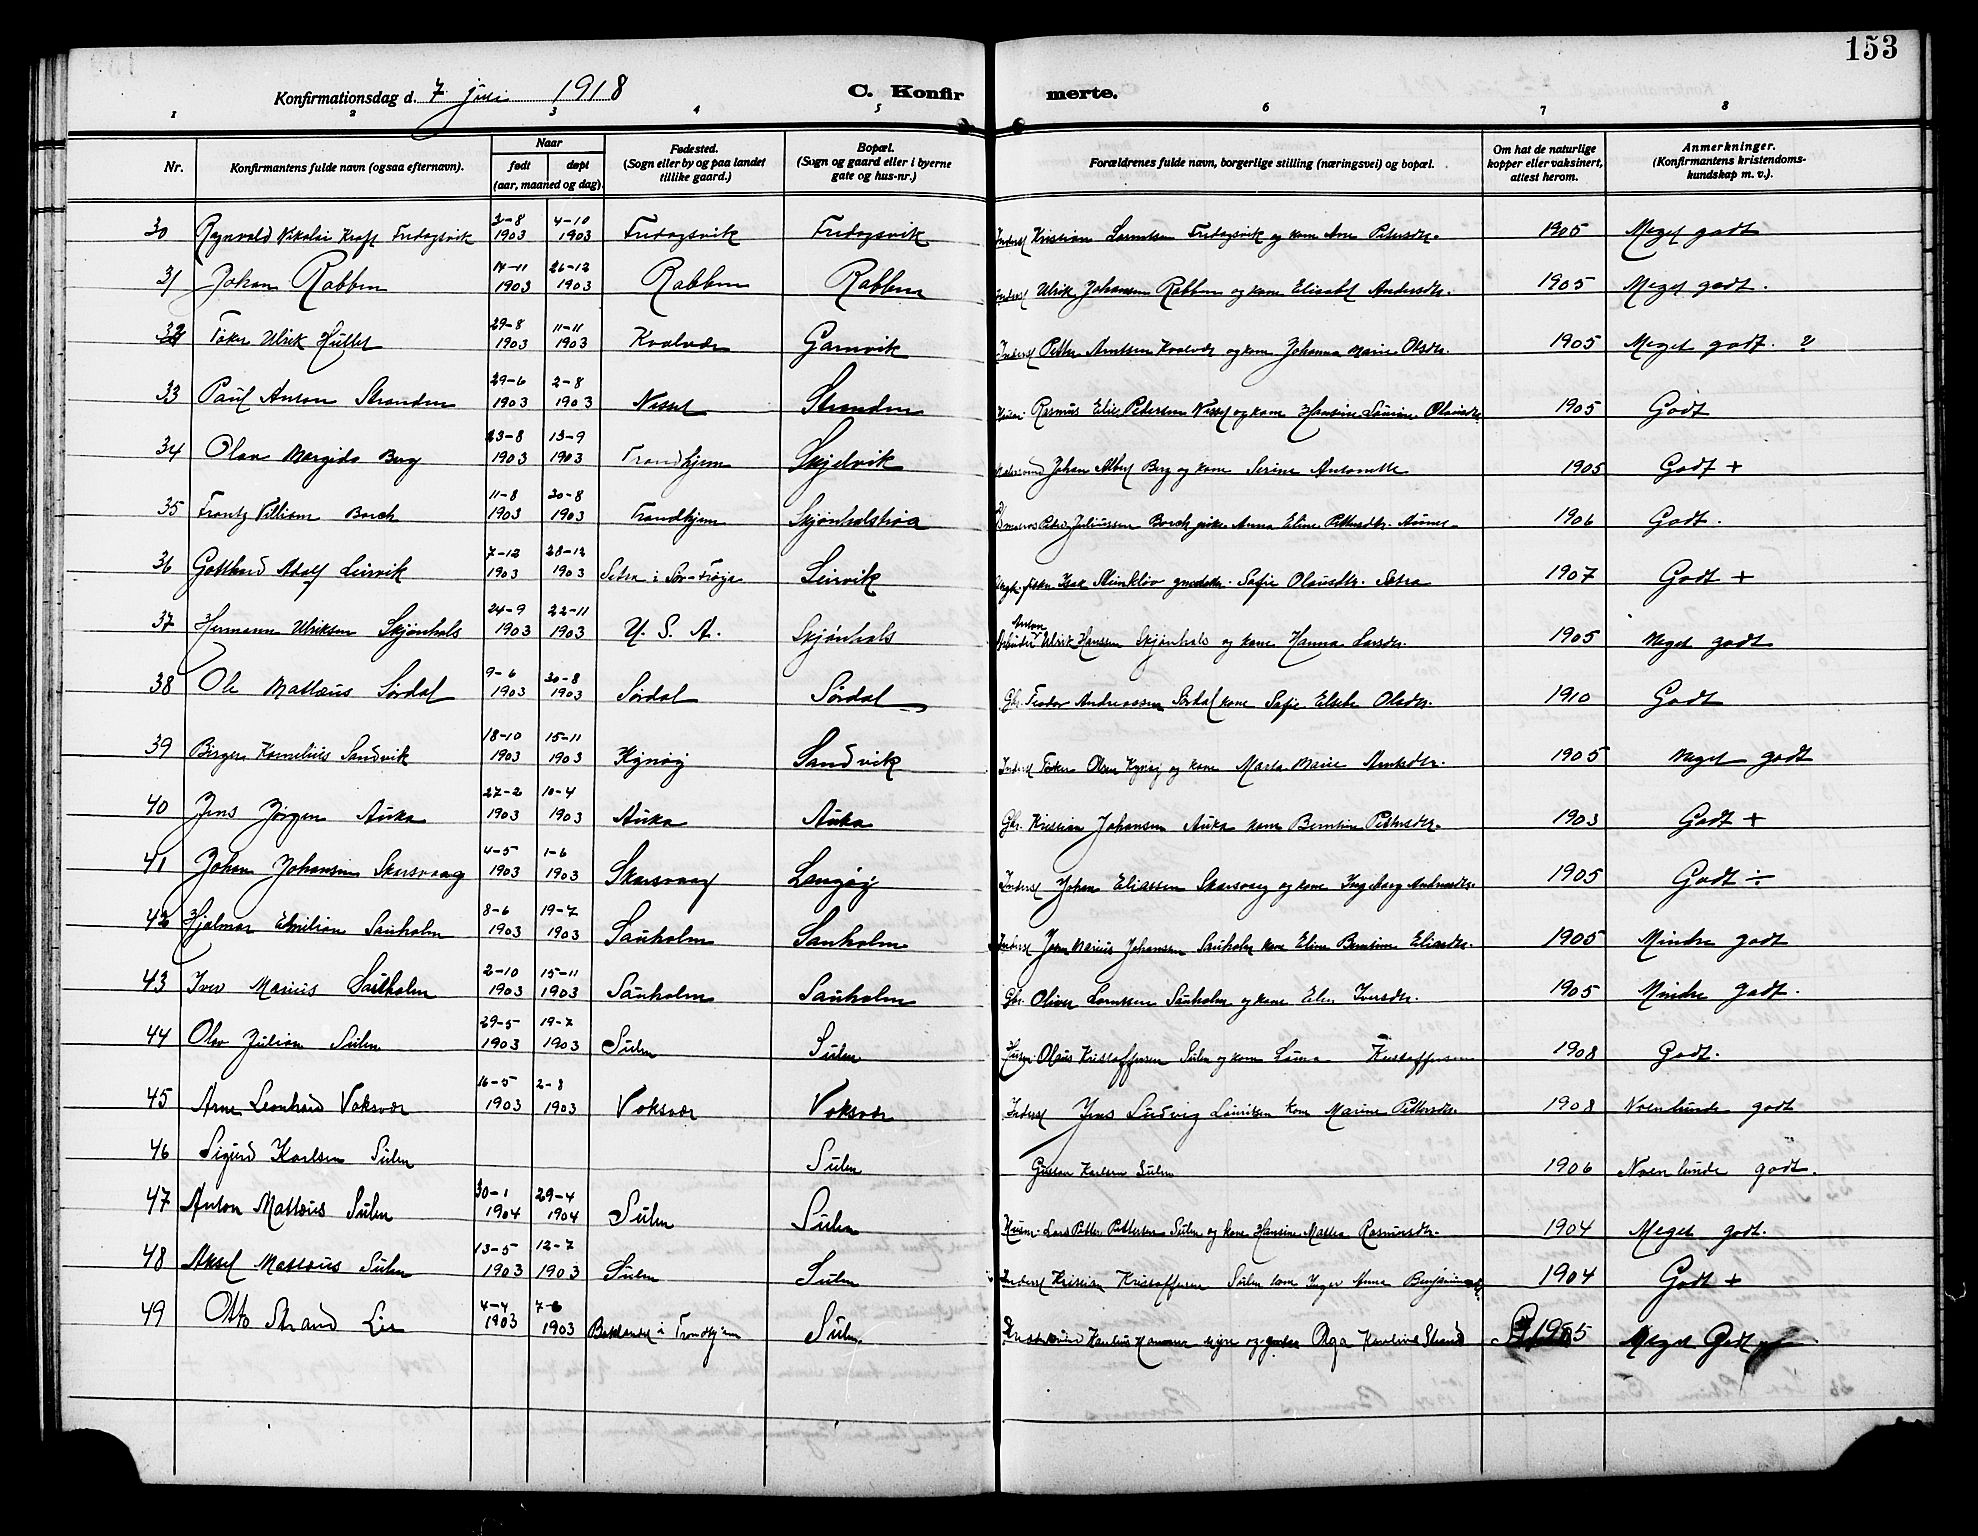 153
Konfirmationsdag d. 7 juli 1918 C. Konfir merte.
1 2 3 4 5 6 7 8
Nr. Konfirmantens fulde navn (ogsaa efternavn). Naar født døpt (aar, maaned og dag). Fødested. (Sogn eller by og paa landet tillike gaard.) Bopæl. (Sogn og gaard eller i byerne gate og hus-nr.) Forældrenes fulde navn, borgerlige stilling (næringsvei) og bopæl. Om hat de naturlige kopper eller vaksinert, attest herom. Anmerkninger. (Konfirmantens kristendoms-kundskap m. v.).
30 Ragnvald Nikolai Kraft Fredagsvik 3-8 1903 4-10 1903 Fredagsvik Fredagsvik Inderst Kristian Lorentsen Fredagsvik og kone Ane Petersdtr. 1905 Meget godt
31 Johan Rabben 14-11 1903 26-12 1903 Rabben Rabben Inderst Ulrik Johansen Rabben og kone Elisabet Andersdtr. 1905 Meget godt.
32 Ulrik 29-8 1903 11-11 1903 Kvalvær Garnvik Inderst Petter Arntsen Kvalvær og kone Johanna Marie Olsdtr. 1905 Meget godt.
33 Paul Anton Stranden 29-6 1903 2-8 1903 Nesset Stranden Rasmus Elias Pedersen og kone Hansine 1905 Godt
34 Olav Berg 23-8 1903 13-9 1903 Trondhjem Skjelvik Johan Albert Berg og kone Serine Antonette 1905 Godt +
35 Frantz Villiam Borch 11-8 1903 30-8 1903 Trondhjem Skjønhalshøa Peter Juliussen Borch pike Anna Eline Pettersdtr. 1906 Godt.
36 Gotthard Adolf Leirvik 7-12 1903 28-12 1903 Setra i Sør-Frøya Leirvik Isak Steinkløv Sofie Olausdtr. Setra 1907 Godt +
37 Hermann Ulriksen Skjønhals 24-9 1903 22-11 1903 U. S. A. Skjønhals Anton Ulrik Hanssen Skjønhals og kone Hanna Larsdtr. 1905 Meget godt
38 Ole Mattæus Sørdal 9-6 1903 30-8 1903 Sørdal Sørdal Gbr. Teodor Andreassen Sørdal kone Sofie Elsebe Olsdtr. 1910 Godt
39 Birger Kornelius Sandvik 18-10 1903 15-11 1903 Sandvik Inderst Olsen og kone Marta Marie Arntsdtr. 1905 Meget godt
40 Jens Jørgen Auka 27-2 1903 10-4 1903 Auka Auka Gbr. Kristian Johansen Auka kone Berntine Pettersdtr. 1903 Godt +
41 Johan Johansen Skarsvaag 4-5 1903 1-6 1903 Skarsvaag Langøy Inderst Johan Eliassen Skarsvaag og kone Ingeborg Andreasdtr. 1905 Godt ÷
42 Hjalmar Emilian Sauholm 8-6 1903 19-7 1903 Sauholm Sauholm Inderst Jørn Marius Johansen Sauholm kone Eline Berntine Eliasdtr. 1905 Mindre godt
43 Iver Marius Sauholm 2-10 1903 15-11 1903 Sauholm Sauholm Gbr. Oliver Lorentsen Sauholm og kone Elen Iversdtr. 1905 Mindre godt.
44 Olav Julian Sulen 29-5 1903 19-7 1903 Sulen Sulen Husm. Olaus Kristoffersen Sulen og kone Kristoffersen 1908 Godt.
45 Arne Leonhard Voksvær 16-5 1903 2-8 1903 Voksvær Voksvær Inderst Jens Ludvig Lauritsen kone Marine Pettersdtr. 1908 Noenlunde godt
46 Sigurd Karlsen Sulen Sulen Gustav Karlsen Sulen 1906 Noenlunde godt.
47 Anton Mattæus Sulen 30-1 1904 29-4 1904 Sulen Sulen Husm. Lars Petter Pettersen Sulen og kone Hansine Mattea Rasmusdtr. 1904 Meget godt.
48 Aksel Mattæus Sulen 13-5 1903 12-7 1903 Sulen Sulen Inderst Kristian Kristoffersen Sulen kone Inger Anna 1904 Godt +
49 Otto Strand Lie 4-4 1903 7-6 1903 Baklandet i Trondhjem Sulen og Olga Karoline Strand 1905 Meget Godt